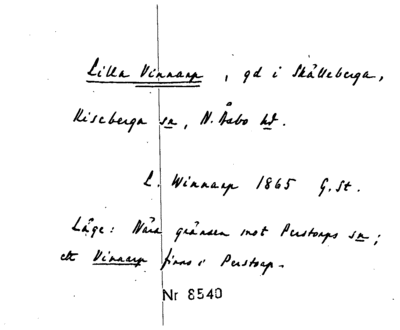 Lilla Vinnarp, gd i Skälleberga,
Riseberga sn, N. Åsbo hd.
L. Winnarp 1865 G. St.
Läge: Nära gränsen mot Perstorps sn;
ett Vinnarp finns i Perstorp.
Nr 8540